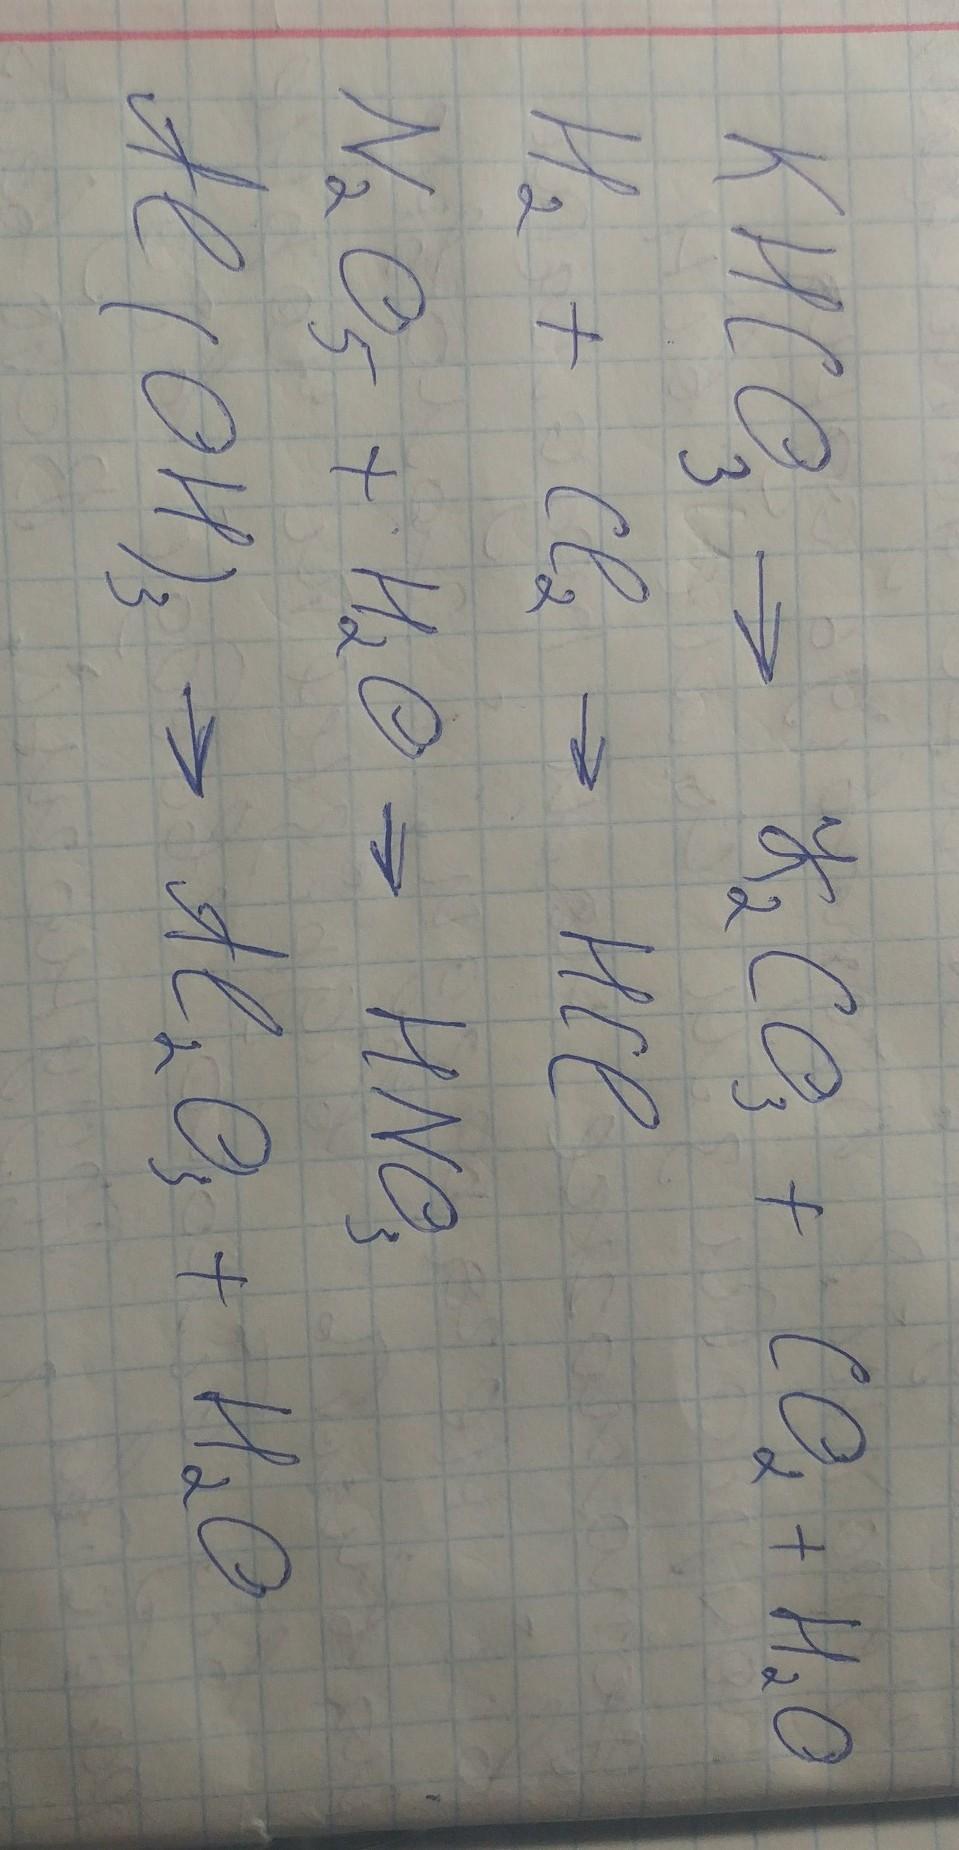 KHCO₃ → K₂CO₃ + CO₂ + H₂O
H₂ + Cl₂ → HCl
N₂O₅ + H₂O → HNO₃
Al(OH)₃ → Al₂O₃ + H₂O